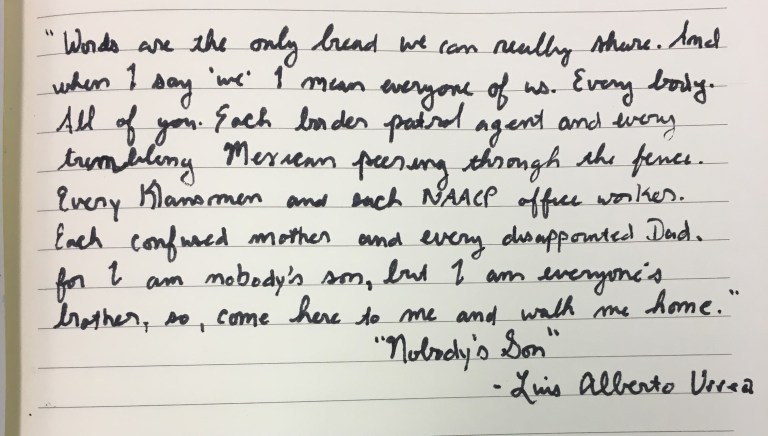 "Words are the only bread we can really share. And
when I say 'we' I mean everyone of us. Every body.
All of you. Each border patrol agent and every
trembling Mexican peering through the fence.
Every Klansmen and each NAACP office worker.
Each confused mother and every disappointed Dad.
for I am nobody's son, but I am everyone's
brother, so, come here to me and walk me home."
"Nobody's Son"
- Luis Alberto Urrea